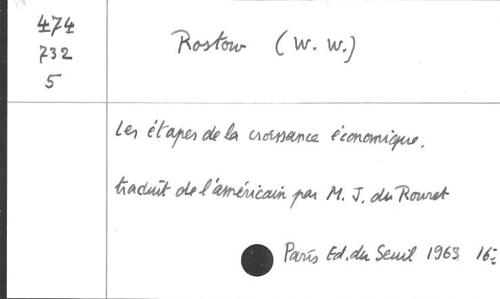 474
732
5
Rostow (W. W.)
Les étapes de la croissance économique.
traduit de l'américain par M. J. du Rouret
Paris Ed. du Seuil 1963 16-